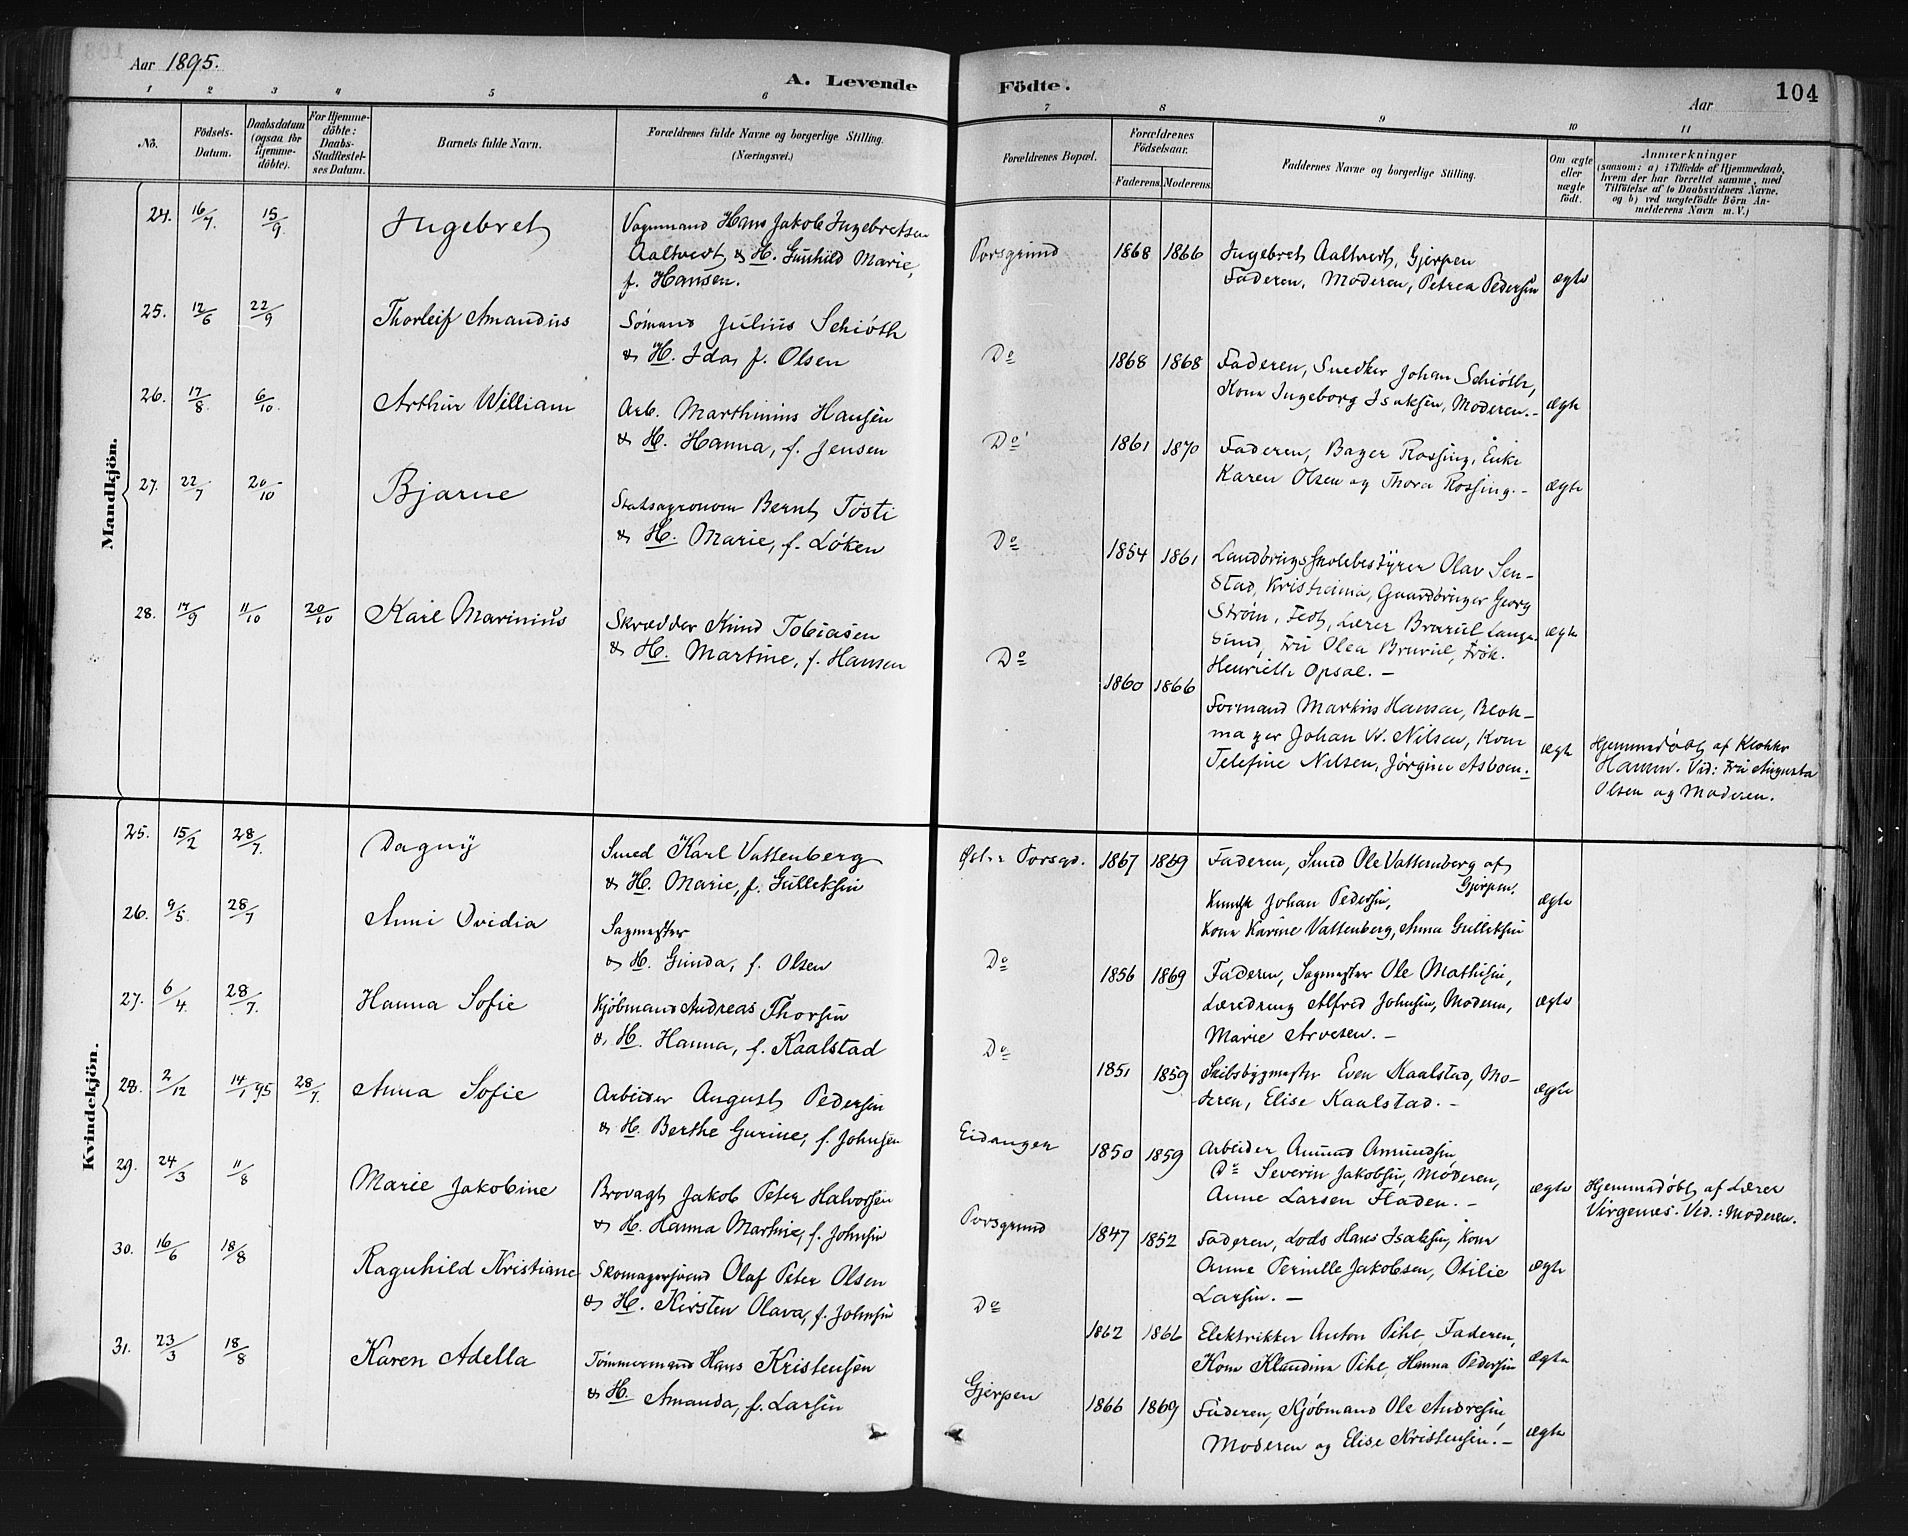 Aar 1895.
A. Levende
Födte.
Aar
104
1 2 3 4 5 6 7 8 9 10 11
No.
Födsels-
Datum.
Daabsdatum
(ogsaa for
Hjemme-
döbte).
For Hjemme-
döbte:
Daabs-
Stadfæstel-
ses Datum.
Barnets fulde Navn.
Forældrenes fulde Navne og borgerlige Stilling.
(Næringsvei.)
Forældrenes Bopæl.
Forældrenes
Födselsaar.
Faderens. Moderens.
Faddernes Navne og borgerlige Stilling.
Om ægte
eller
uægte
födt.
Anmærkninger
(saasom: a) i Tilfælde af Hjemmedaab,
hvem der har forrettet samme, med
Tilföielse af to Daabsvidners Navne,
og b) ved uægtefödte Börn An-
melderens Navn m. V.)
Mandkjön.
24. 16/7. 15/9. Ingebret
Vognmand Hans Jakob Ingebretsen
Aaltvedt & H. Gunhild Marie,
f. Hansen.
Porsgrund 1868 1866
Ingebret Aaltvedt, Gjerpen
Faderen, Moderen, Petrea Pedersen
ægte
25. 12/6 22/9 Thorleif Amandus
Sømand Julius Schiøth
& H. Ida, f. Olsen
Do 1868 1868
Faderen, Snedker Johan Schiøth,
Kone Ingeborg Isaksen, Moderen. –
ægte
26. 17/8. 6/10. Arthur William
Arb. Marthinius Hansen
& H. Hanna, f. Jensen
Do 1861 1870
Faderen, Bager Rossing, Enke
Karen Olsen og Thora Rossing. –
ægte
27. 22/7 20/10 Bjarne
Statsagronom Bernt Tøsti
& H. Marie, f. Løken
Do 1854 1861
Landbrugsskolebestyrer Olav Sen-
stad, Kristiania, Gaardbruger Georg
Strøm, , Lærer Lange-
sund, Fru Olea Brurul, Frøk.
Henriette Opsal. –
ægte
28. 17/9 11/10 20/10 Karl Marinius
Skrædder Knud Tobiasen
& H. Martine, f. Hansen
Do 1860 1866
Formand Markus Hansen, Blok-
mager Johan W. Nilsen, Kone
Telefine Nilsen, Jørgine Asbom.
ægte
Hjemmedøbt af Klokker
Hamm. Vid: Fru Augusta
Olsen og Moderen.
Kvindekjön.
25. 15/2 28/7. Dagny
Smed Karl Vattenberg
& H. Marie, f. Gulleksen
Østre Porsgd. 1867 1869
Faderen, Smed Ole Vattenberg af
Gjerpen.
Johan Pedersen,
Kone Karine Vattenberg, Anna Gulleksen
ægte
26. 9/5. 28/7 Anni Ovidia
Sagmester
& H. Gunda, f. Olsen
Do 1856 1869
Faderen, Sagmester Ole Mathisen,
Læredreng Alfred Johnsen, Moderen,
Marie Arvesen. –
ægte
27. 6/4 28/7. Hanna Sofie
Kjøbmand Andreas Thorsen
& H. Hanna, f. Kaalstad
Do 1851 1859
Skibsbygmester Even Kaalstad, Mo-
deren, Elise Kaalstad. –
ægte
28. 2/12 14/1 95 28/7. Anna Sofie
Arbeider August Pedersen
& H. Berthe Gurine, f. Johnsen
Eidanger 1850 1859
Arbeider Amund Amundsen
Do Severin Jakobsen, Moderen,
Anne Larsen Fladen. –
ægte
Hjemmedøbt af Lærer
Virgenes. Vid.: Moderen.
29. 24/3 11/8 Marie Jakobine
Brovagt Jakob Peter Halvorsen
& H. Hanna Martine, f. Johnsen
Porsgrund 1847 1852
Faderen, Lods Hans Isaksen, Kone
Anne Pernille Jakobsen, Otilie
Larsen. –
ægte
30. 16/6 18/8 Ragnhild Kristiane
Skomagersvend Olaf Peter Olsen
& H. Kirsten Olava, f. Johnsen
Do 1862 1866
Elektrikker Anton Pihl, Faderen,
Kone Klaudine Pihl, Hanna Pedersen
ægte
31. 23/3 18/8 Karen Adella
Tømmermand Hans Kristensen
& H. Amanda, f. Larsen
Gjerpen 1866 1869
Faderen, Kjøbmand Ole Andresen,
Moderen og Elise Kristensen. –
ægte